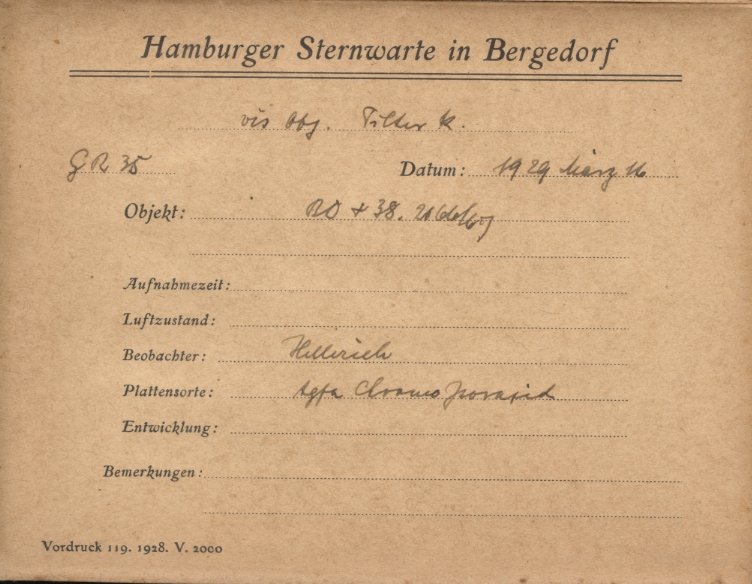 Hamburger Sternwarte in Bergedorf
vis Obj. Filter k.
GR 35 Datum: 1929 März 16
Objekt: BD + 38.
Aufnahmezeit:
Luftzustand:
Beobachter: Hellerich
Plattensorte: Agfa Chromo Isorapid
Entwicklung:
Bemerkungen:
Vordruck 119. 1928. V. 2000